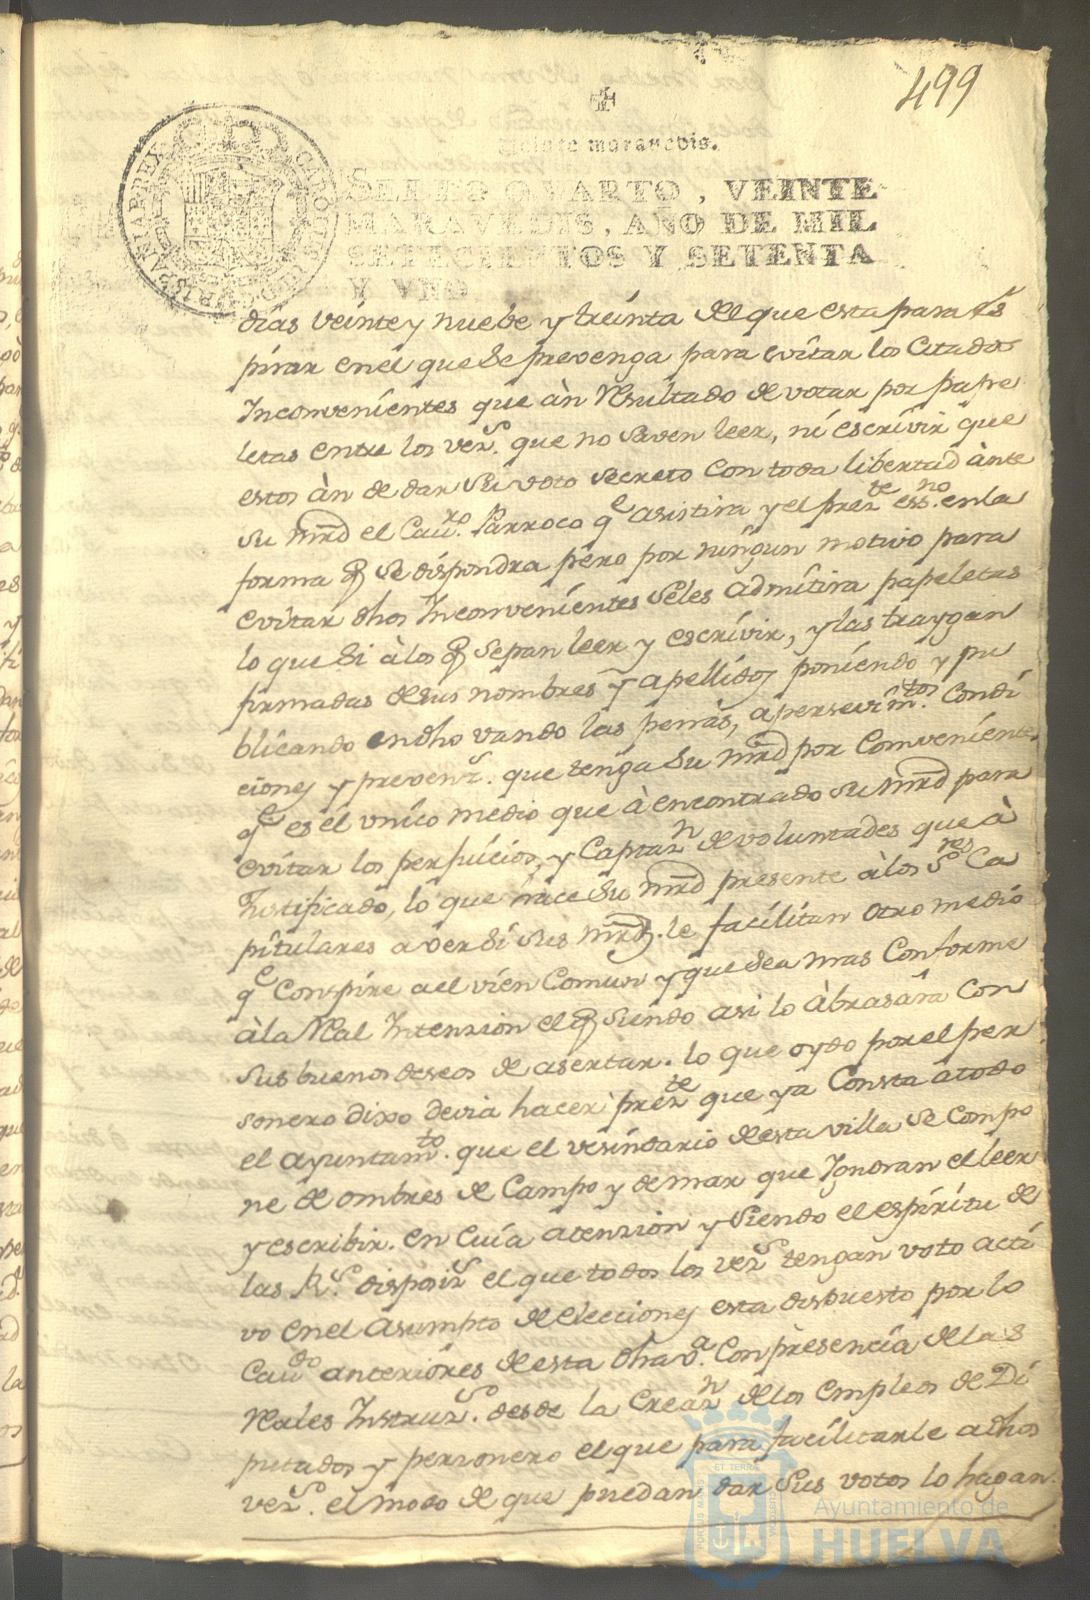 499
Veinte maravedis.
SELLO QVARTO, VEINTE
MARAVEDIS, AÑO DE MIL
SETECIENTOS Y SETENTA
Y VNO
CAROLUS III D G HISPANIAR REX
dias veinte y nuebe y treinta del que esta para es
pirar en el que se prevenga para evitar los Citados
Inconvenientes que àn Resultado de votar por pape
letas entre los vezs. que no saven leer, ni escrivir que
estos àn de dar su voto secreto con toda libertad ànte
su mrd el Cavro. Parroco qe asistira y el prezte esno. en la
forma q se dispondra pero por ningun motivo para
evitar dhos Inconvenientes seles admitira papeletas
lo que si à los q sepan leer y escrivir, y las traygan
firmadas de sus nombres y apellidos poniendo y pu
blicando en dho vando las penas, apersevimtos. Condi
ciones y prevenzs. que tenga su mrd por Conveniente
qe es el unico medio que à encontrado su mrd para
evitar los perjuicios, y Captazn de voluntades que à
Justificado, lo que hace su mrd presente à los Sres Ca
pitulares a ver si sus mrds. le facilitan otro medio
qe Conspire a el vien Comun y que sea mas Conforme
à la Real Intenzion el q siendo asi lo àbrasara con
sus buenos deseos de asertar. lo que oydo por el per
sonero dixo devia hacer prezte que ya Consta à todo
el ayuntamto. que el vesindario de esta villa se compo
ne de ombres de Campo y de mar que Ignoran el leer
y escribir. en Cuia atenzion y siendo el espiritu de
las Rs. disposizs el que todos los vezs tengan voto acti
vo en el asumpto de elecciones esta dispuesto por lo
Cavdo anteriores de esta dha va. Con presencia de las
Reales Instruzs. desde la Creazn de los empleos de Di
putados y personero el que para facilitarle a dhos
vezs. el modo de que puedan dar sus votos lo hagan
Ayuntamiento de
HUELVA